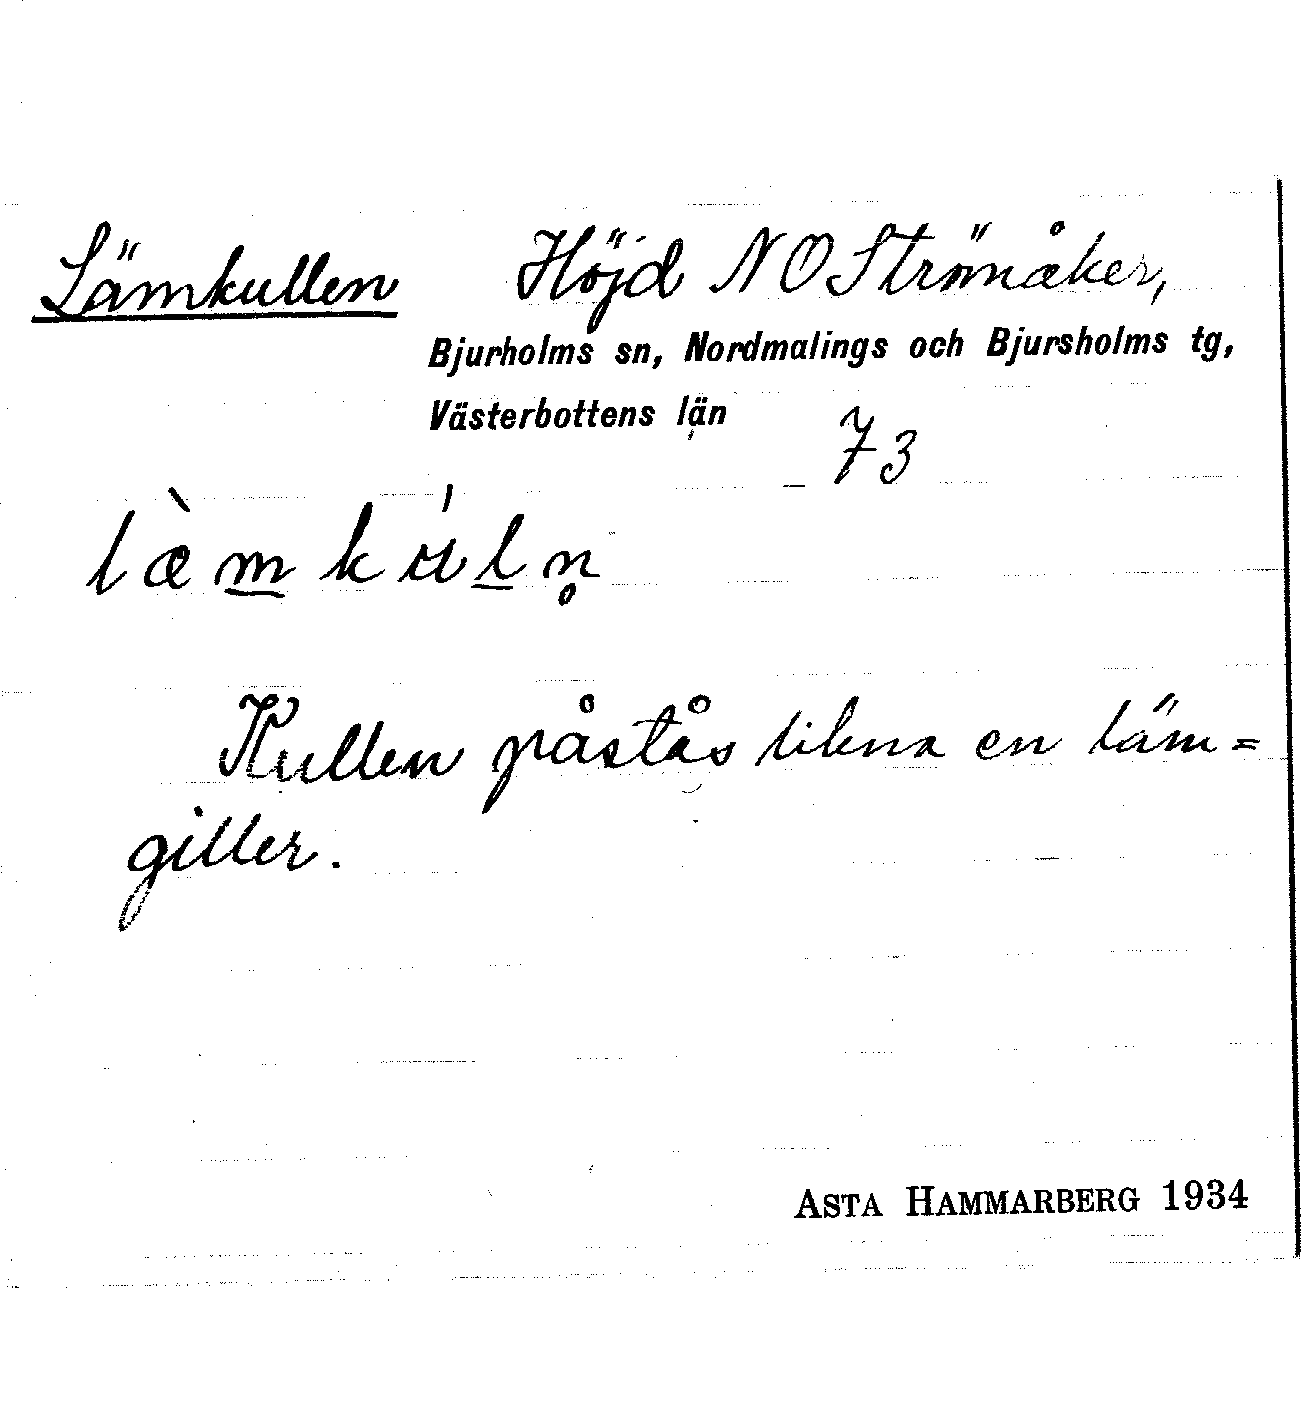 Lämkullen Höjd NO Strömåker,
Bjurholms sn, Nordmalings och Bjursholms tg,
Västerbottens län
73
læ̀m̲ kʉ́l̲n̥
Kullen påstås likna en läm=
giller.
ASTA HAMMARBERG 1934